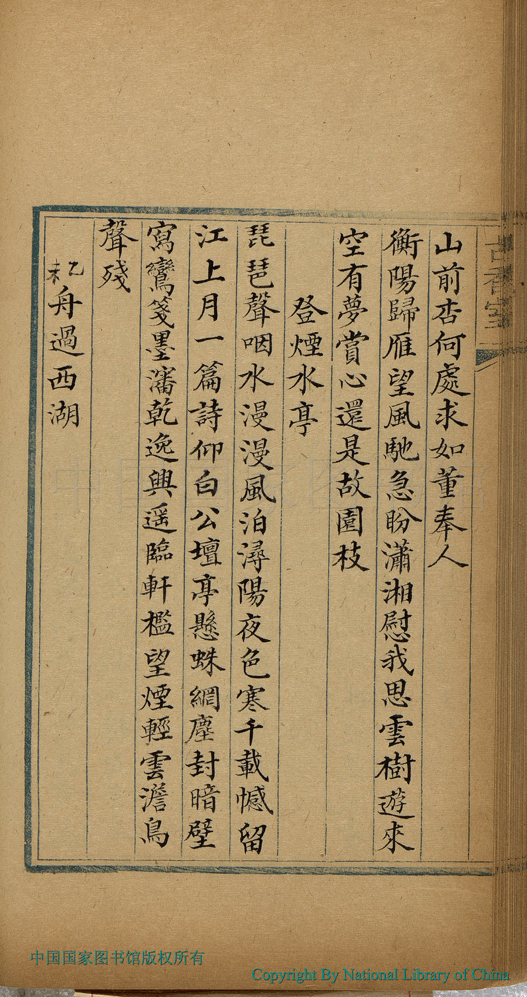 古香室
山前杏何處求如董奉人
衡陽歸雁望風馳急盼瀟湘慰我思雲樹遊來
空有夢賞心還是故園枝
登煙水亭
琵琶聲咽水漫漫風泊潯陽夜色寒千載憾留
江上月一篇詩仰白公壇亭懸蛛網塵封暗壁
寫鸞箋墨瀋乾逸興遥臨軒檻望煙輕雲澹鳥
聲殘
乙未舟過西湖
中国国家图书馆版权所有
Copyright By National Library of China